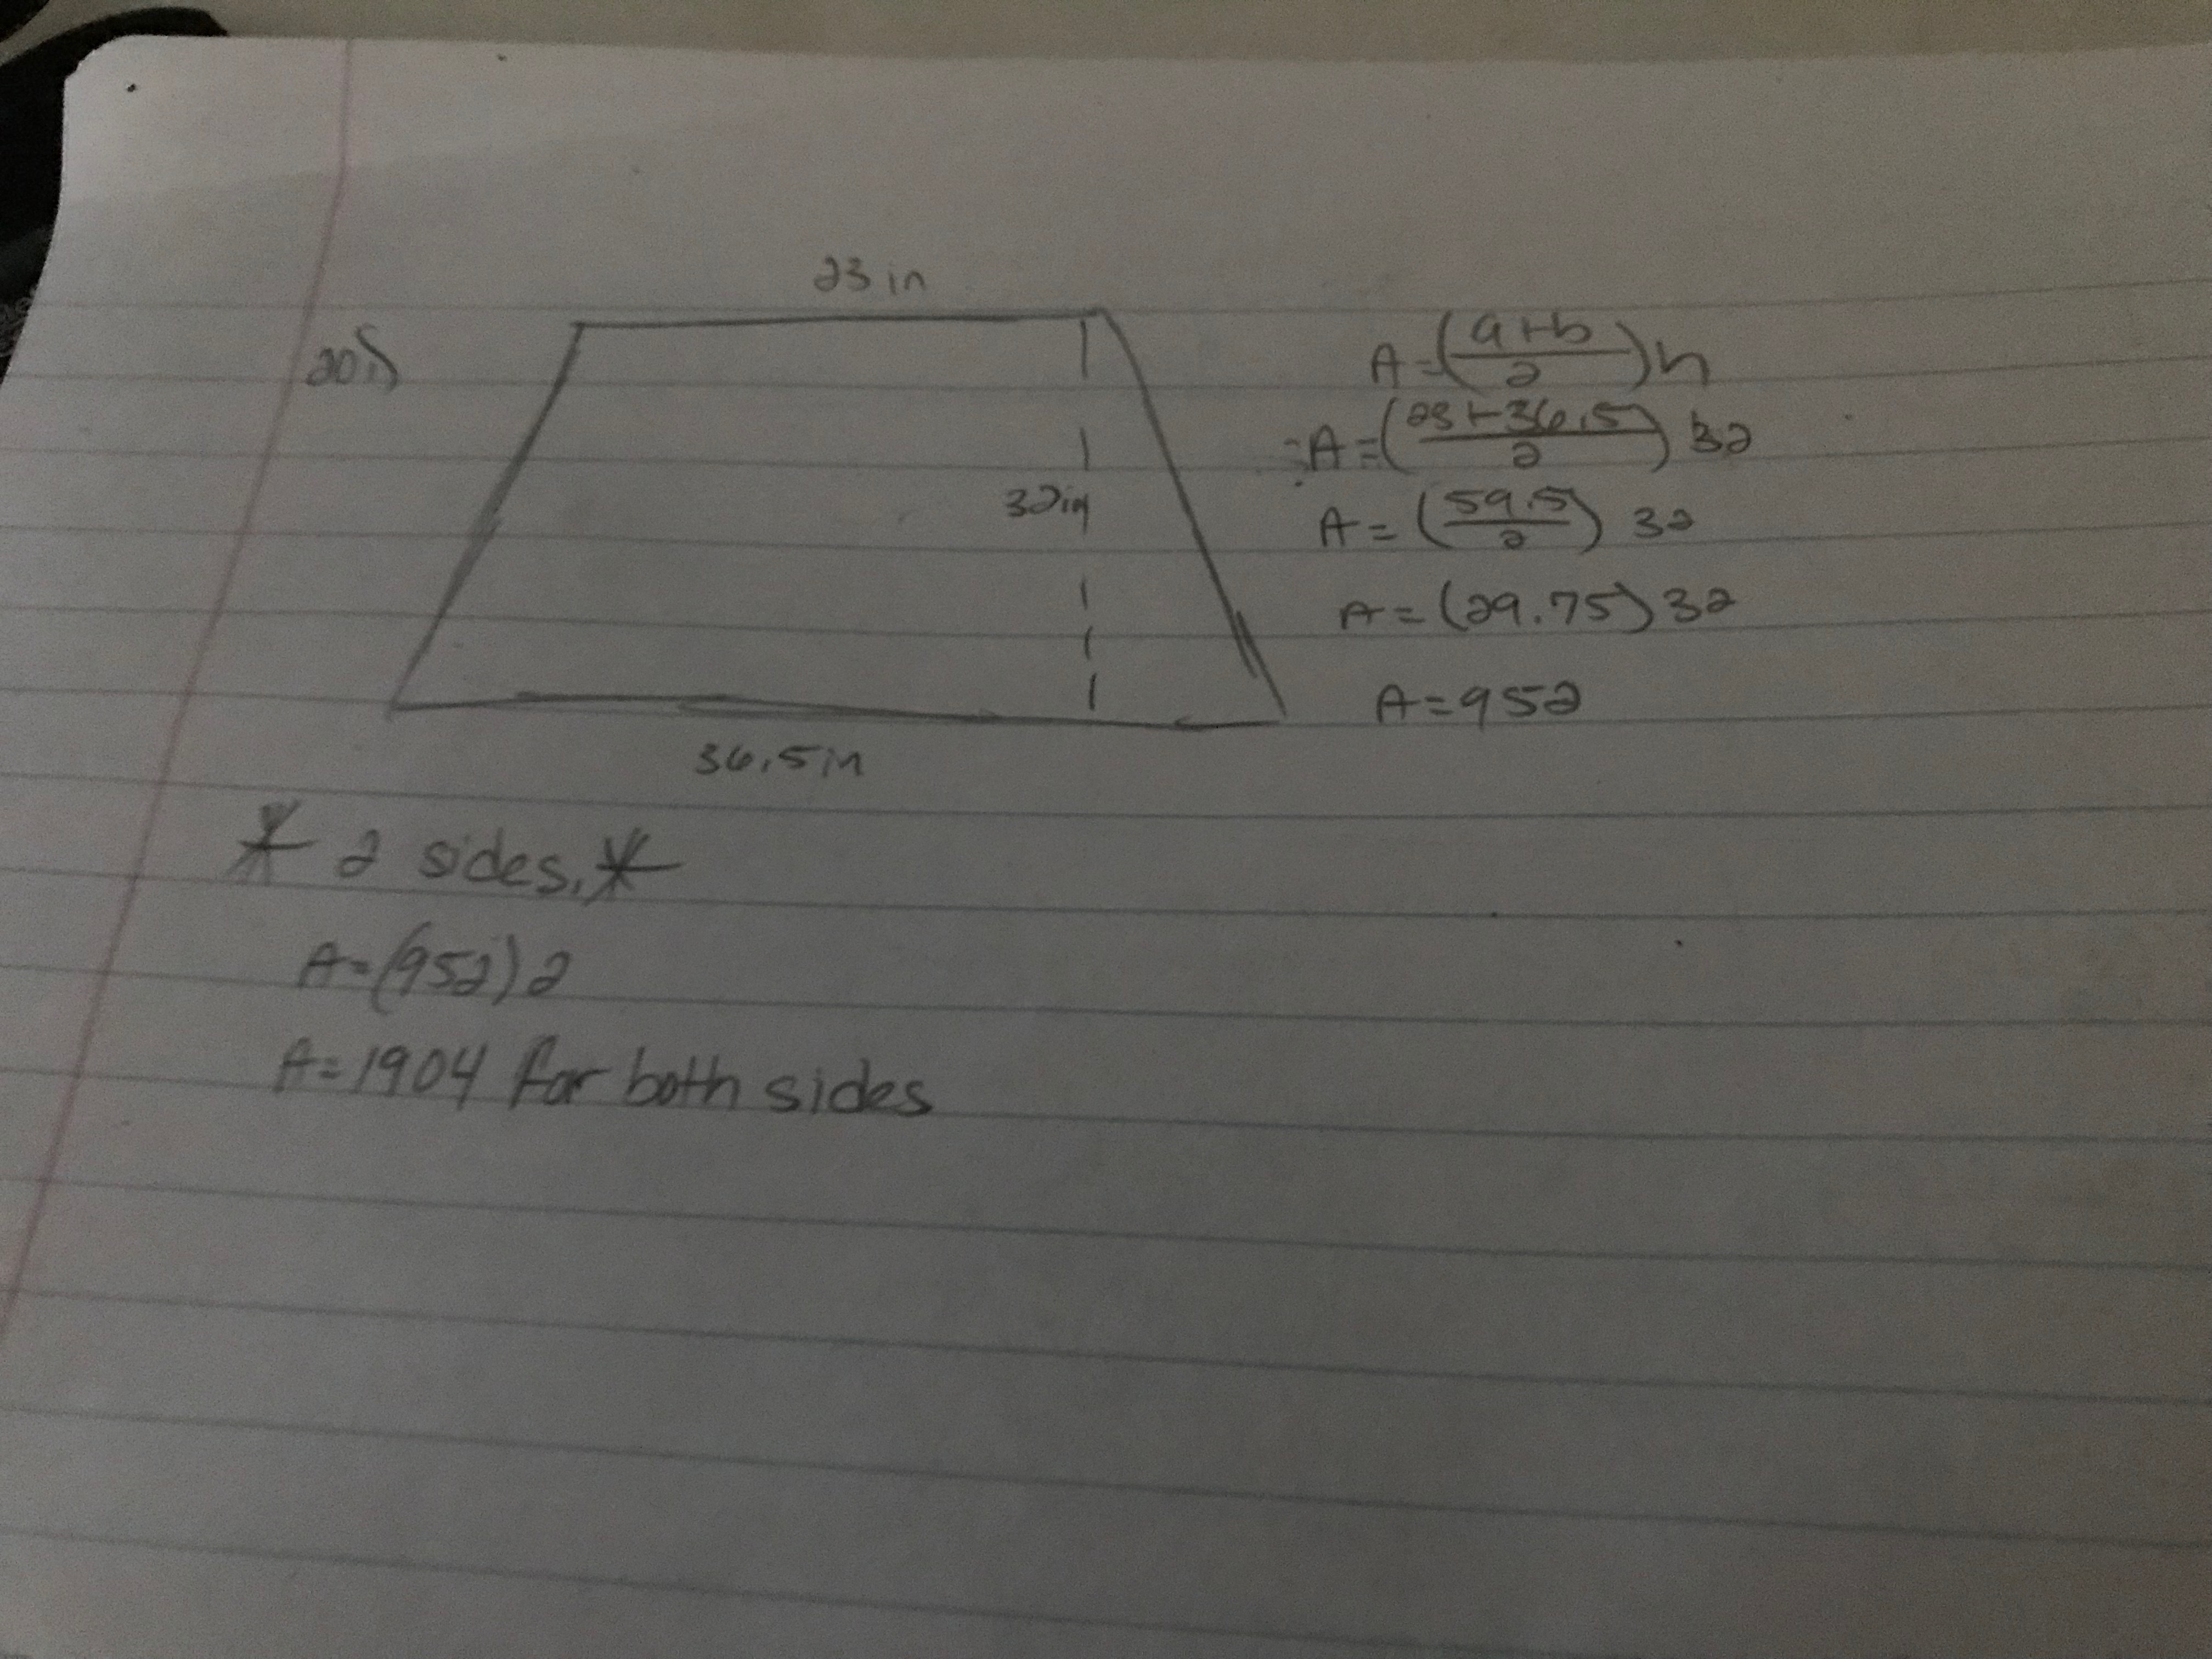 23 in
20.)
32in
36.5in
A=(a+b/2)h
A=(23+36.5/2) 32
A=(59.5/2) 32
A=(29.75)32
A=952
* 2 sides.*
A=(952)2
A=1904 for both sides